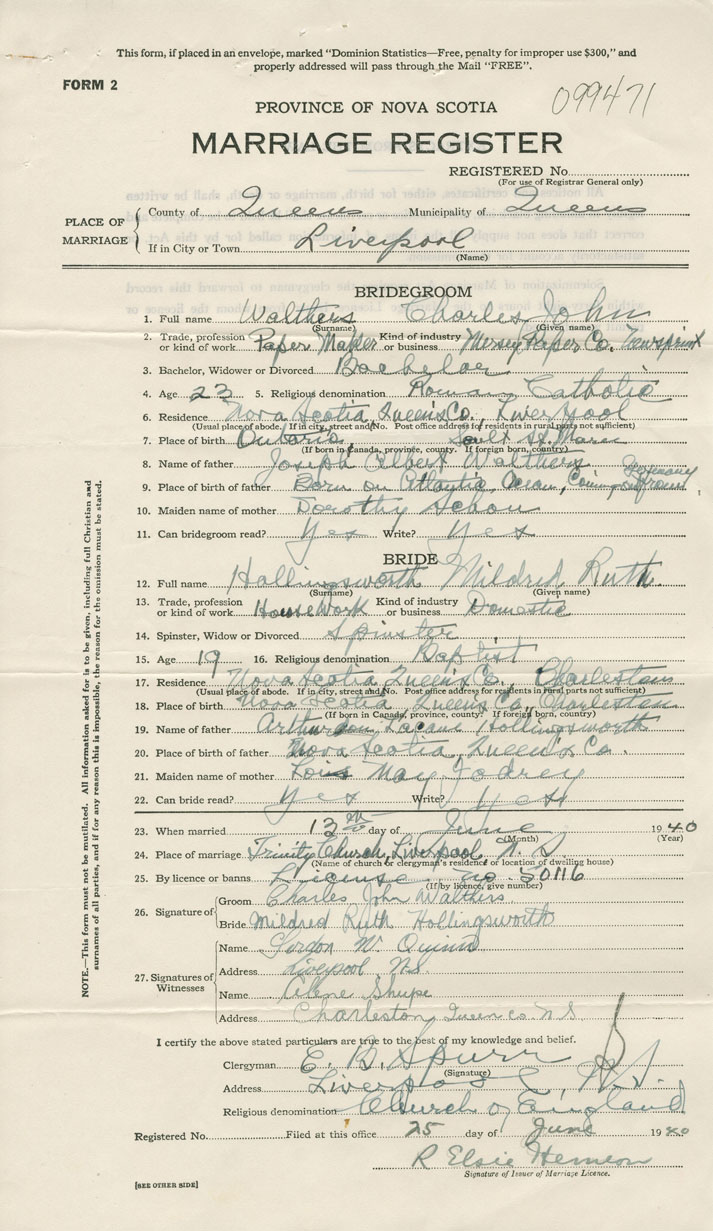 This form, if placed in an envelope, marked "Dominion Statistics—Free, penalty for improper use $300," and
properly addressed will pass through the Mail "FREE".
FORM 2
099471
PROVINCE OF NOVA SCOTIA
MARRIAGE REGISTER
REGISTERED No.
(For use of Registrar General only)
PLACE OF MARRIAGE
County of Queens Municipality of Queens
If in City or Town Liverpool
(Name)
BRIDEGROOM
1. Full name Walthers Charles John
(Surname) (Given name)
2. Trade, profession or kind of work Paper Maker Kind of industry or business Mersey Paper Co. Newsprint
3. Bachelor, Widower or Divorced Bachelor
4. Age 23 5. Religious denomination Roman Catholic
6. Residence Nova Scotia, Queen's Co., Liverpool
(Usual place of abode. If in city, street and No. Post office address for residents in rural parts not sufficient)
7. Place of birth Ontario, Sault St. Marie
(If born in Canada, province, county. If foreign born, country)
8. Name of father Joseph Albert Walthers
9. Place of birth of father Born on Atlantic Ocean, Coming from Germany
10. Maiden name of mother Dorothy
11. Can bridegroom read? Yes Write? Yes
BRIDE
12. Full name Hollingsworth Mildred Ruth
(Surname) (Given name)
13. Trade, profession or kind of work HouseWork Kind of industry or business Domestic
14. Spinster, Widow or Divorced Spinster
15. Age 19 16. Religious denomination Baptist
17. Residence Nova Scotia Queen's Co., Charleston
(Usual place of abode. If in city, street and No. Post office address for residents in rural parts not sufficient)
18. Place of birth Nova Scotia Queen's Co., Charleston
(If born in Canada, province, county. If foreign born, country)
19. Name of father Arthur Hollingsworth
20. Place of birth of father Nova Scotia, Queen's Co.
21. Maiden name of mother Lois May
22. Can bride read? Yes Write? Yes
23. When married 13th day of June 1940
(Month) (Year)
24. Place of marriage Trinity Church, Liverpool, N.S.
(Name of church or clergyman's residence or location of dwelling house)
25. By licence or banns License no. 50116
(If by licence, give number)
26. Signature of
Groom Charles John Walthers
Bride Mildred Ruth Hollingsworth
27. Signatures of Witnesses
Name Gordon W. Quinn
Address Liverpool, N.S.
Name Arlene Shupe
Address Charleston Queen co. N.S.
I certify the above stated particulars are true to the best of my knowledge and belief.
Clergyman E. B. Spurr
(Signature)
Address Liverpool, N.S.
Religious denomination Church of England
Registered No. Filed at this office 25 day of June 1940
R Elsie Hemeon
Signature of Issuer of Marriage Licence.
[SEE OTHER SIDE]
NOTE.—This form must not be mutilated. All information asked for is to be given, including full Christian and
surnames of all parties, and if for any reason this is impossible, the reason for the omission must be stated.